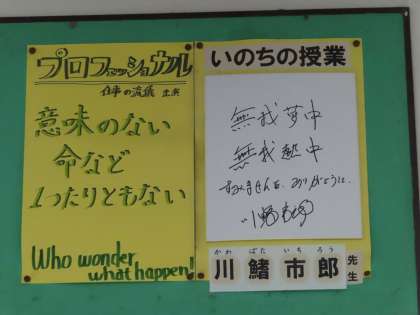 プロフェッショナル
仕事の流儀 出演
意味のない
命など
1つたりともない
Who wonder
what happen!
いのちの授業
無我夢中
無我熱中
すみませんを、ありがとうに、
かわ ばた いち ろう
川鰭市郎
先生